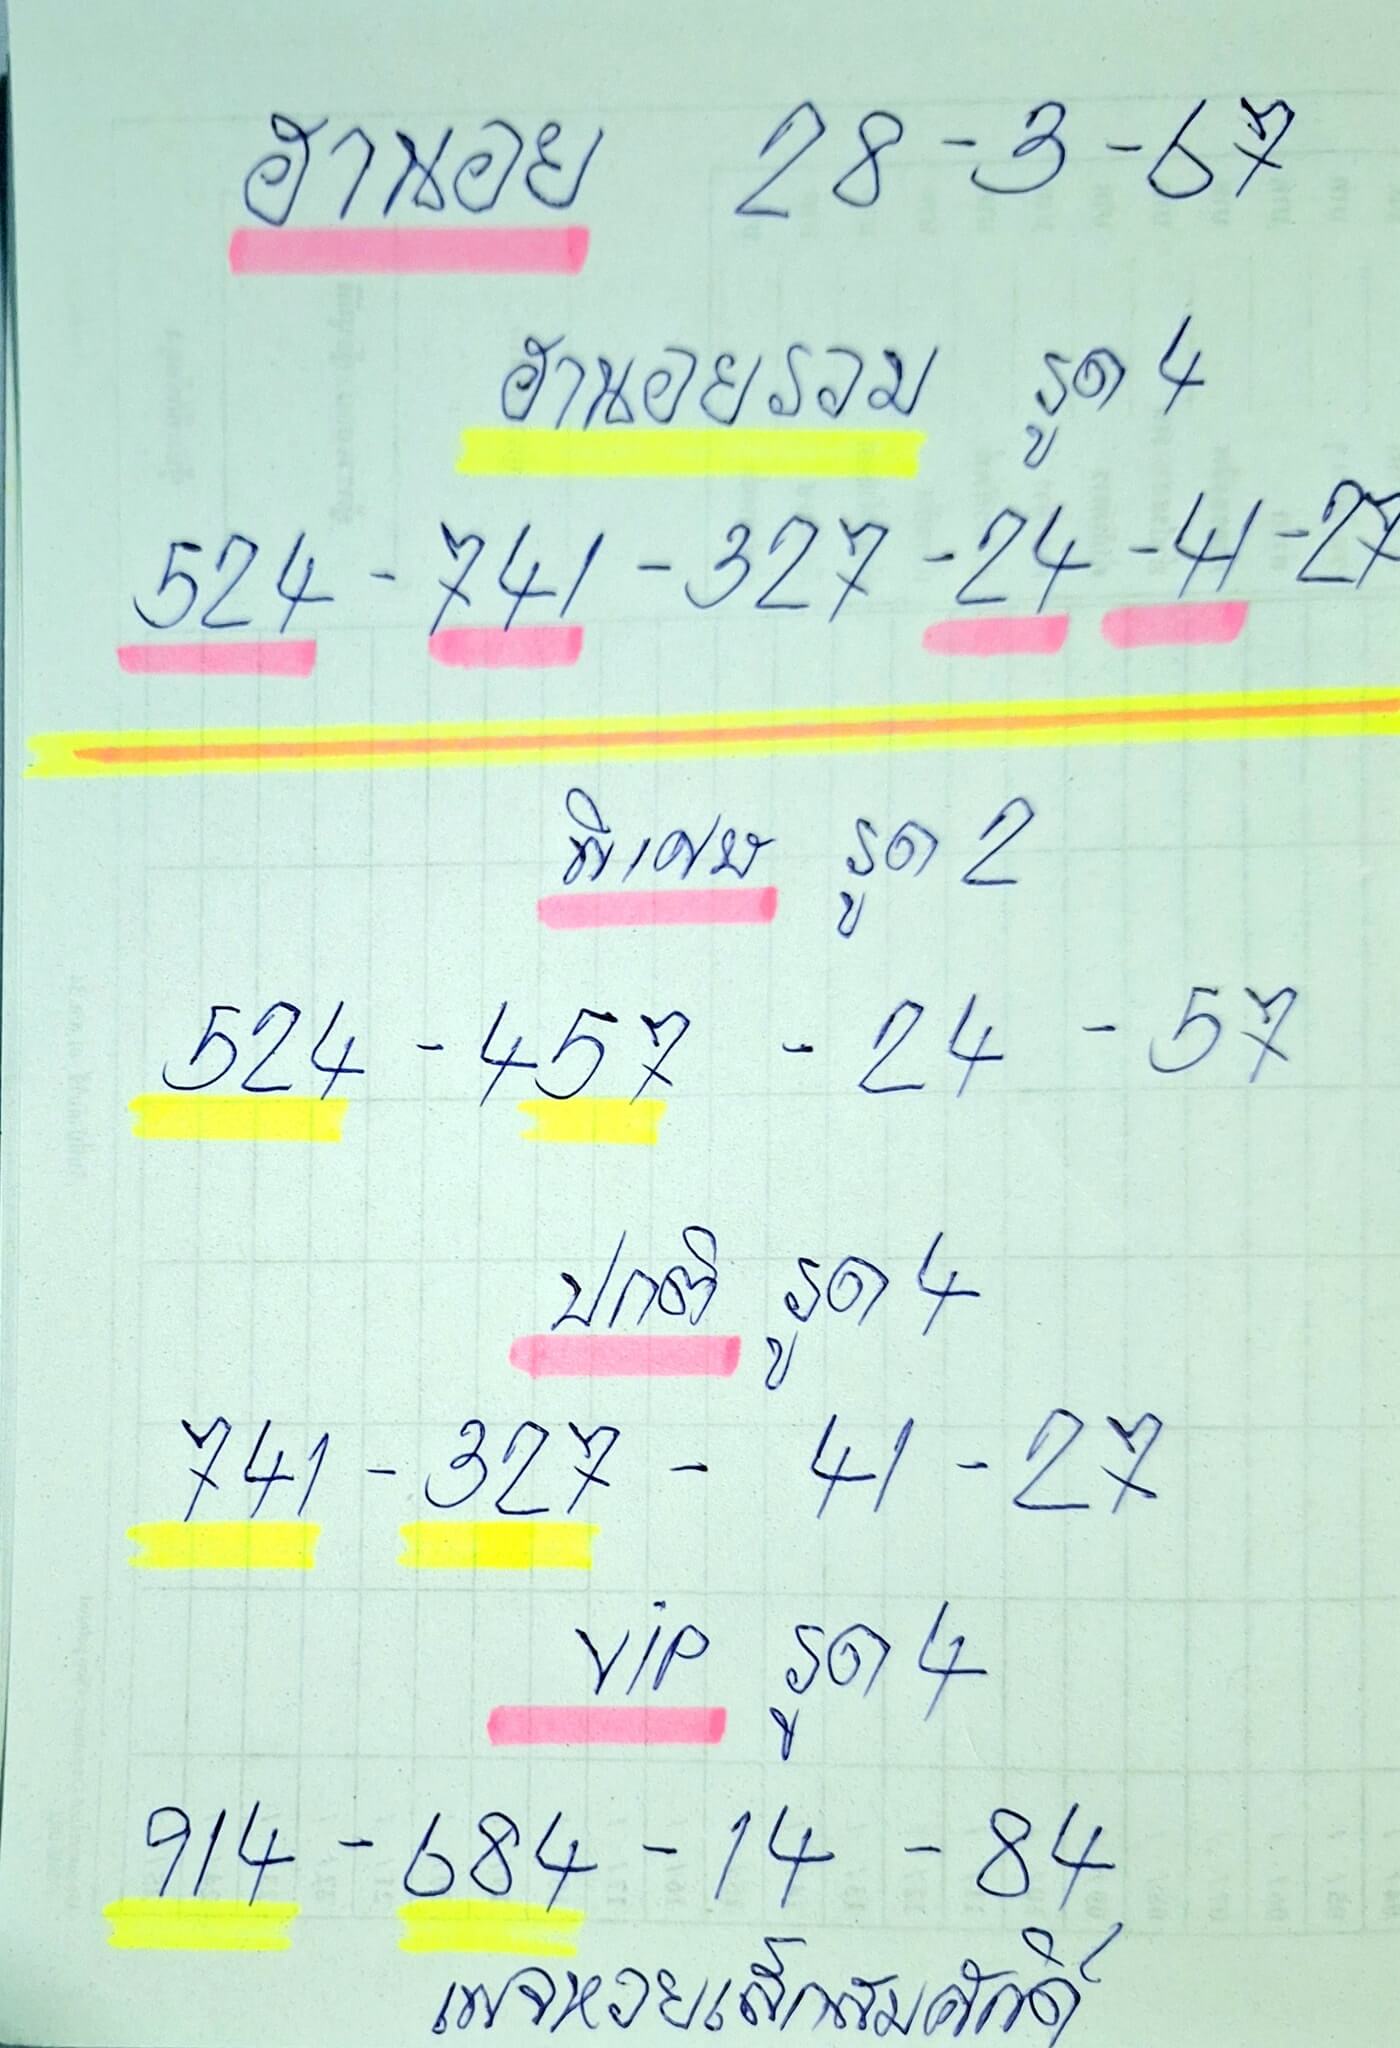 ฮานอย 28-3-67
ฮานอยรวม รูด 4
524 - 741 - 327 - 24 - 41 - 27
พิเศษ รูด 2
524 - 457 - 24 - 57
ปกติ รูด 4
741 - 327 - 41 - 27
vip รูด 4
914 - 684 - 14 - 84
เพจหวยเล็กสมศักดิ์